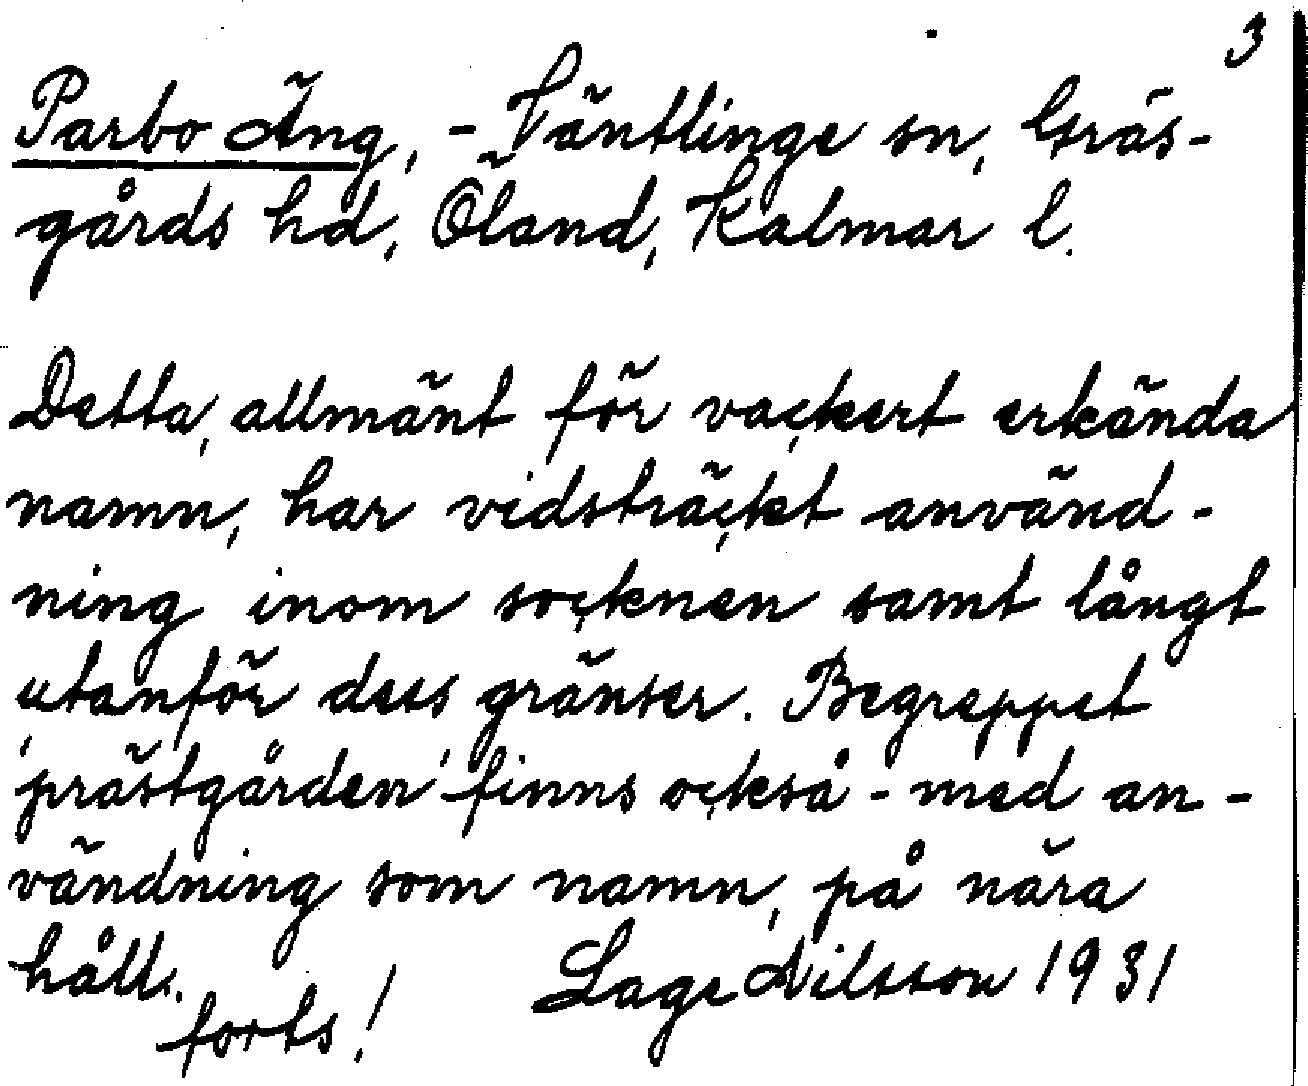 3
Parbo Äng, - Väntlinge sn, Gräs-
gårds hd, Öland, Kalmar l.
Detta, allmänt för vackert erkända
namn, har vidsträckt använd-
ning inom socknen samt långt
utanför dess gränser. Begreppet
'prästgården' finns också - med an-
vändning som namn, på nära
håll.
forts! Lage Nilsson 1931